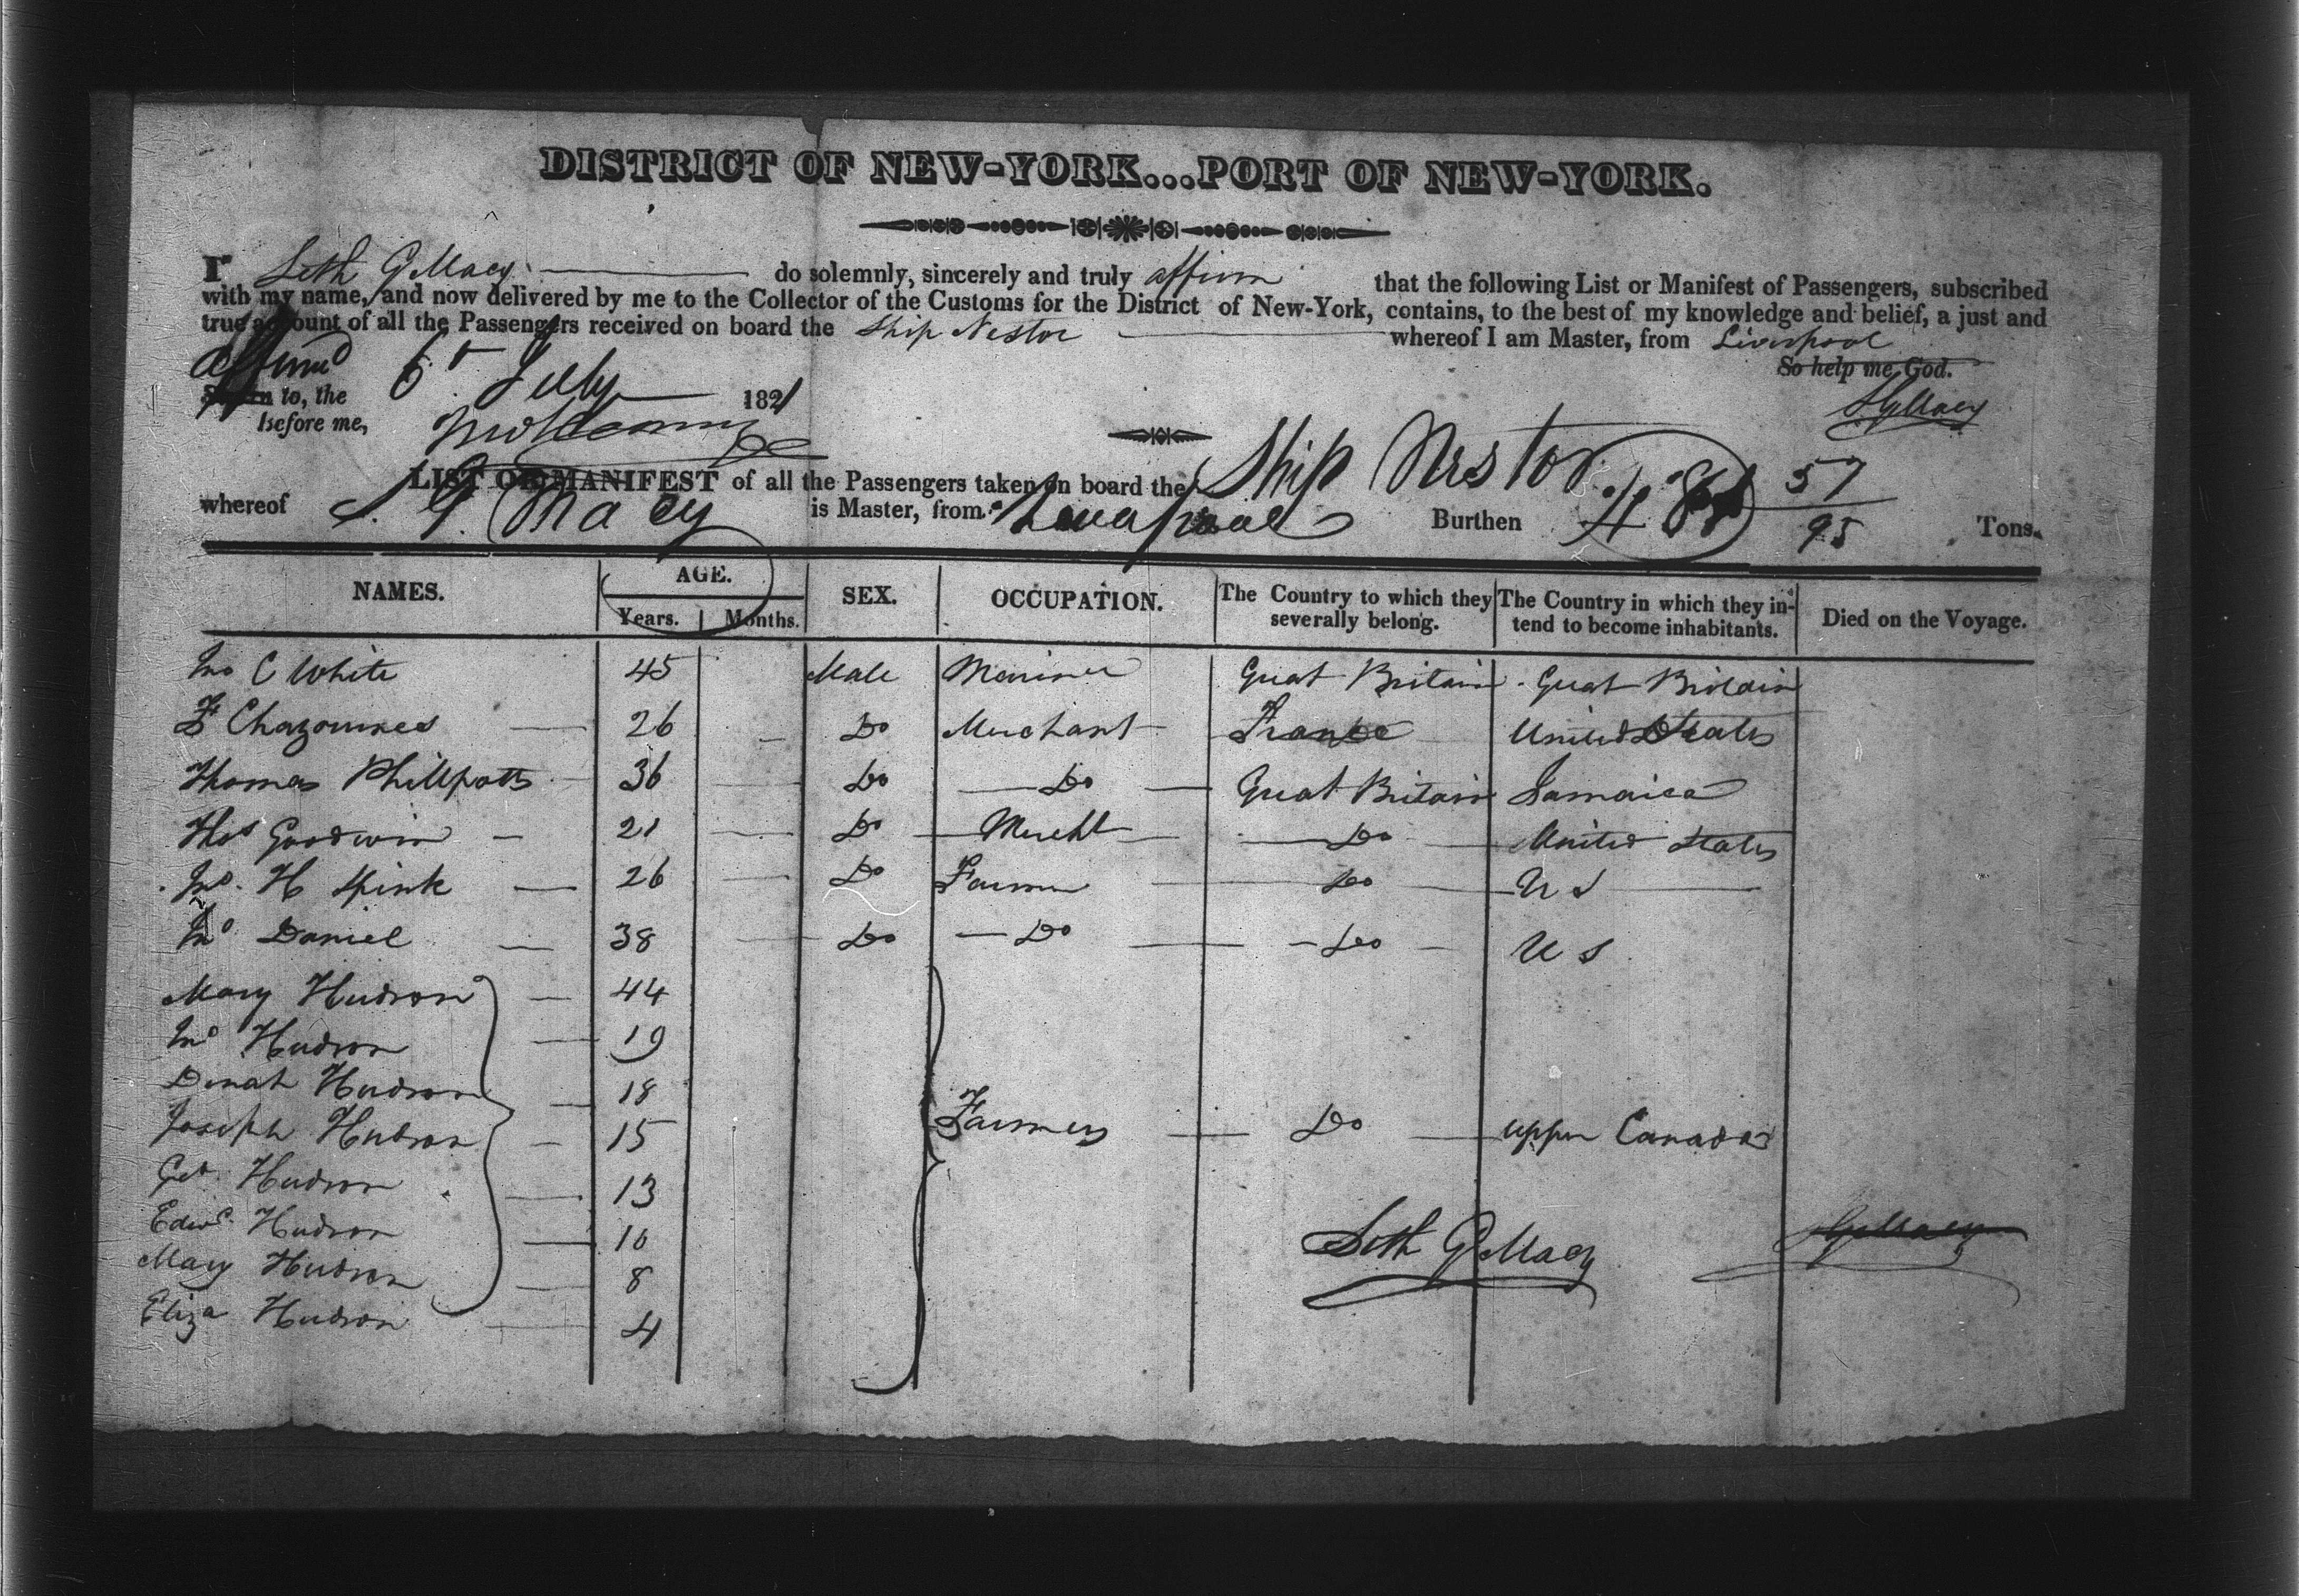 DISTRICT OF NEW-YORK...PORT OF NEW-YORK.
I Seth G Macy do solemnly, sincerely and truly affirm that the following List or Manifest of Passengers, subscribed
with my name, and now delivered by me to the Collector of the Customs for the District of New-York, contains, to the best of my knowledge and belief, a just and
true account of all the Passengers received on board the Ship Nestor whereof I am Master, from Liverpool
So help me God.
affirmd
Sworn to, the 6th July 1821
S G Macy
before me,
LIST OR MANIFEST of all the Passengers taken on board the Ship Nestor
whereof S. G. Macy is Master, from Liverpool Burthen 481 57/95 Tons.
NAMES. AGE. SEX. OCCUPATION. The Country to which they severally belong. The Country in which they intend to become inhabitants. Died on the Voyage.
Years. Months.
Jno C White 45 Male Mariner Great Britain Great Britain
F Chazournes 26 Do Merchant France United States
Thomas Phillpotts 36 Do Do Great Britain Jamaica
Thos Goodwin 21 Do Mercht Do United States
Jno. H Spink 26 Do Farmer Do U S
Jno Daniel 38 Do Do Do U S
Mary Hudson 44
Jno Hudson 19
Dinah Hudson 18
Joseph Hudson 15 Farmers Do upper Canada
Geo. Hudson 13
Edwd. Hudson 10
Mary Hudson 8
Eliza Hudson 4
Seth G Macy S G Macy